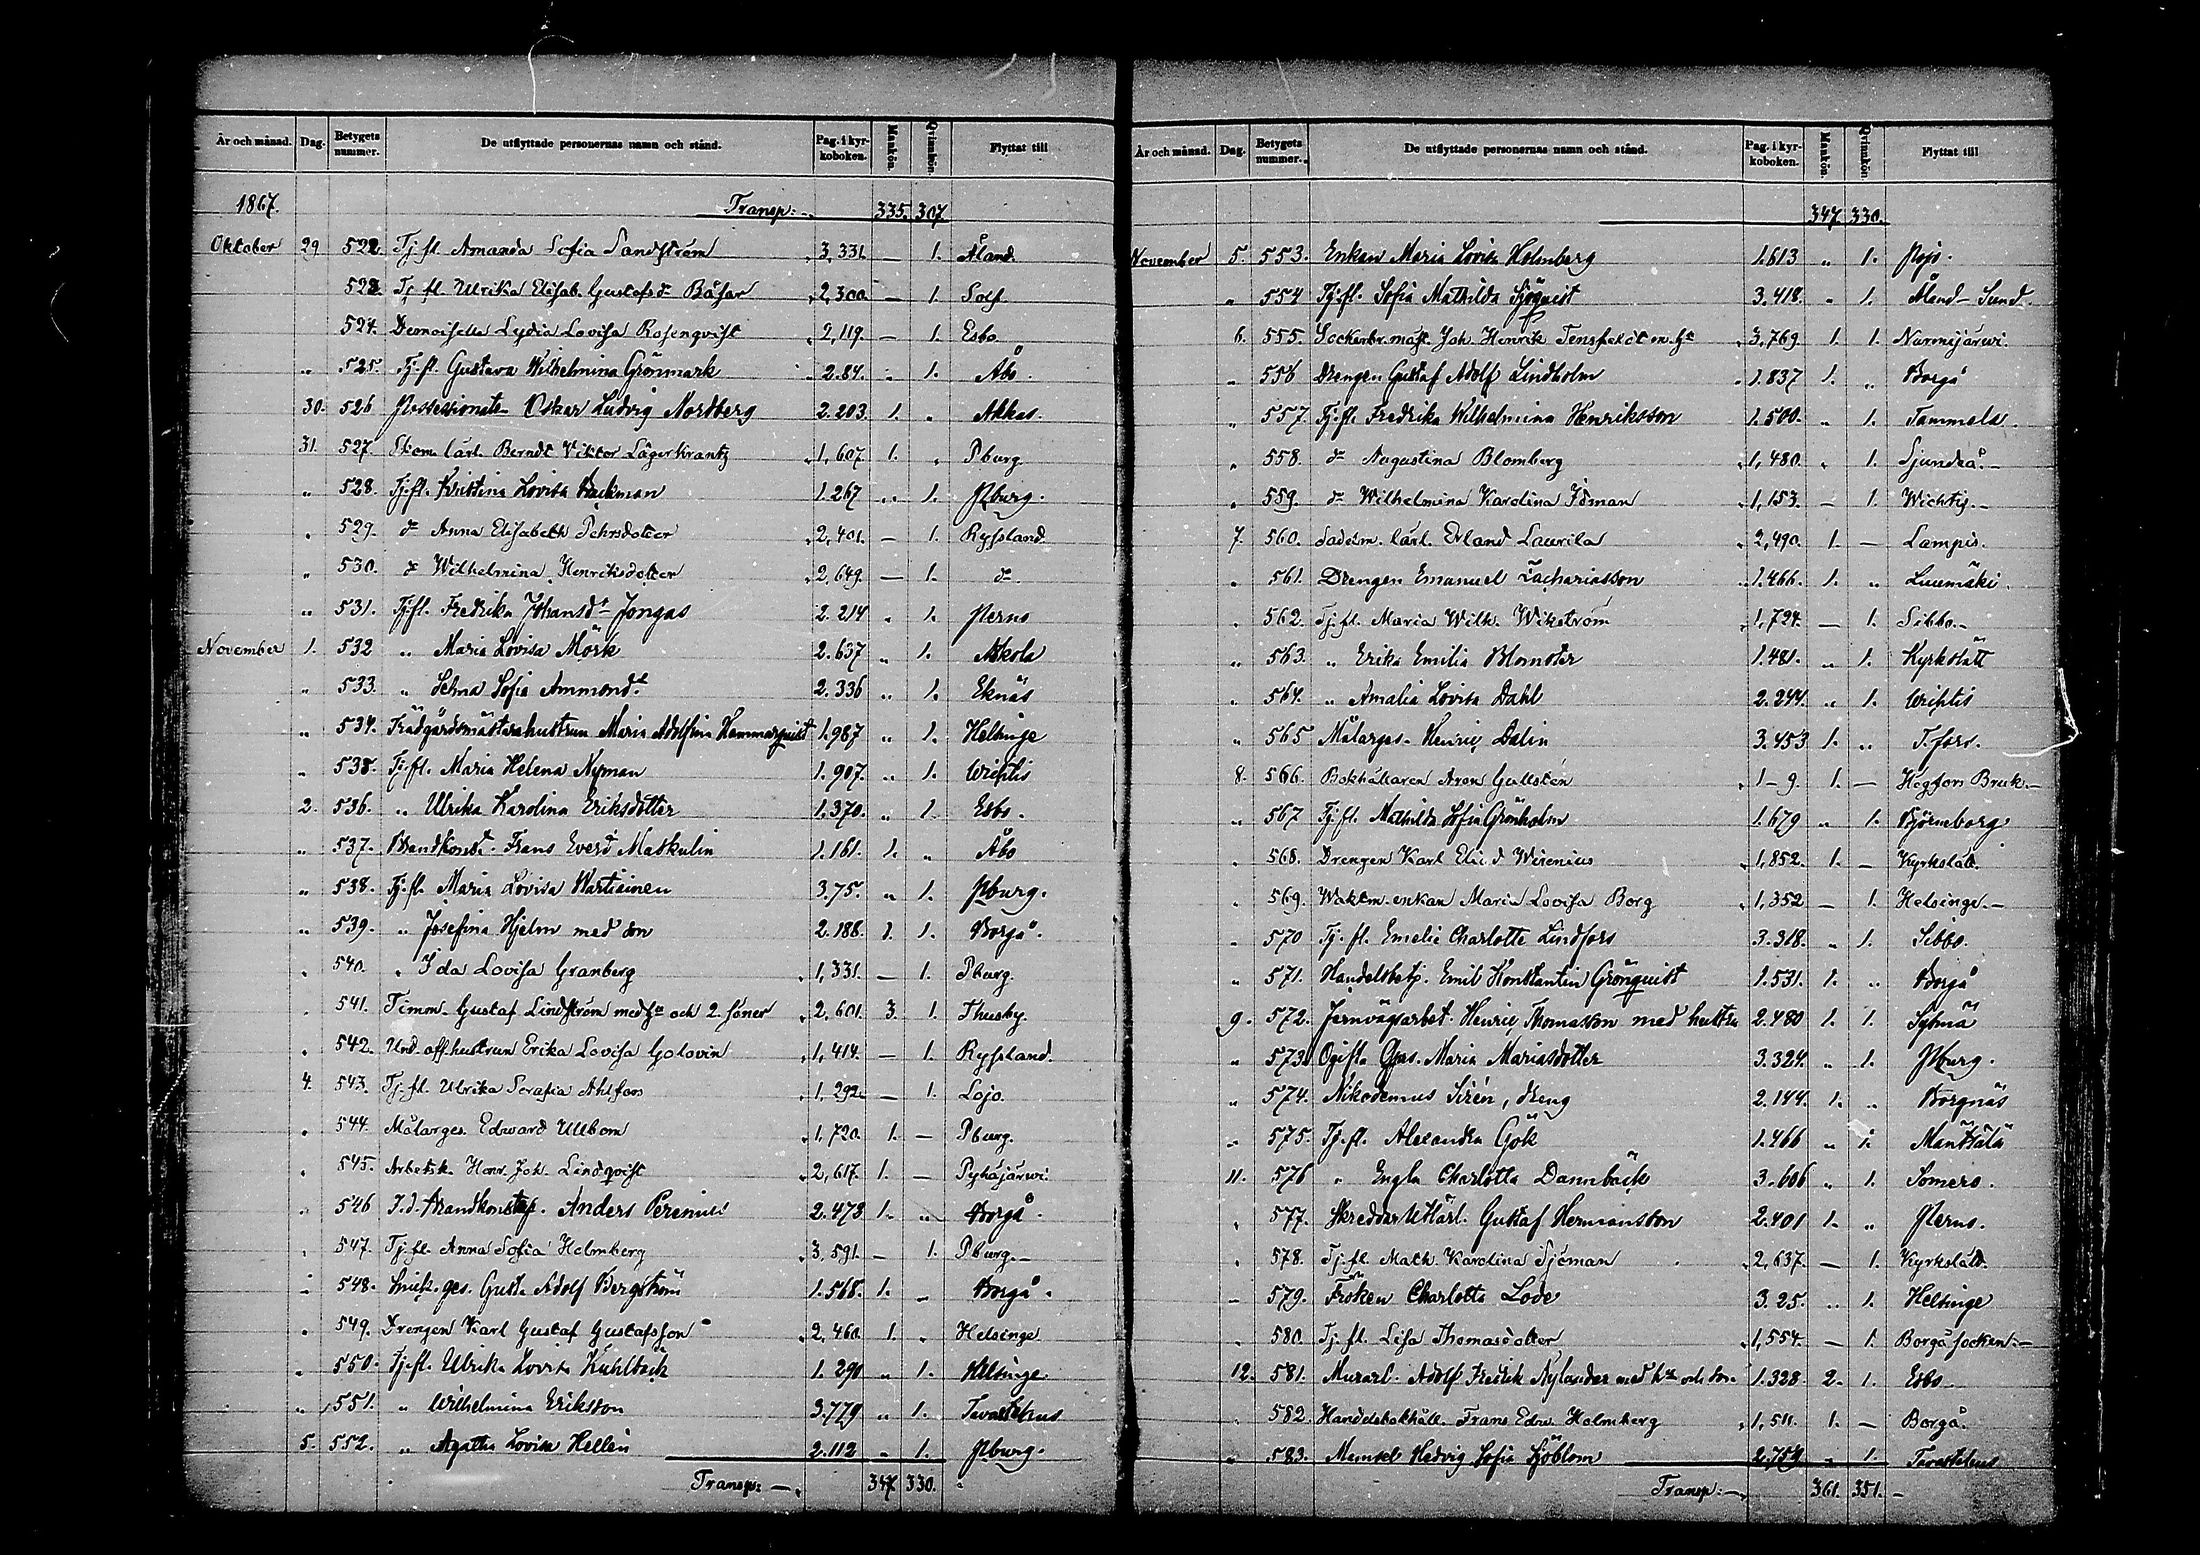 År och månad. Dag. Betygets nummer. De utflyttade personernas namn och stånd. Pag. i kyrkoboken. Mankön. Qvinnkön. Flyttat till
1867. Transp: 335. 307
Oktober 29 522. Tj. fl. Amanda Sofia Sandström 3,331. — 1. Åland.
523. Tj fl. Ulrika Elisab. Gustafsd:r Båsar 2,300 — 1. Solf
524. Demoiselle Lydia Lovisa Rosenqvist 2,119. — 1. Esbo
" 525. Tj. fl. Gustava Wilhelmina Grönmark 2.84. " 1. Åbo
30. 526 Possessionaten Oskar Ludvig Nordberg 2.203. 1. " Akkas.
31. 527. Ekom. lärl. Berndt Viktor Lägerkrantz 1,607 1. " Pburg.
" 528. Tj. fl. Kristina Lovisa Backman 1.267 " 1. Pburg.
" 529. d:o Anna Elisabeth Pehrsdotter 2,401. — 1. Ryssland
" 530. d:o Wilhelmina Henriksdotter 2,649. — 1. d:o
" 531. Tj. fl. Fredrika Johansd:r Jongas 2.214 " 1. Perno
November 1. 532 " Maria Lovisa Mörk 2.637 " 1. Askola
" 533. " Selma Sofia Ammond:t 2.336 " 1. Eknäs
" 534. Trädgårdsmästarehustrun Maria Adolfina Hammarquist 1.987 " 1. Helsinge
" 535. Tj. fl. Maria Helena Nyman 1.907. " 1. Wichtis
2. 536. " Ulrika Karolina Eriksdotter 1.370. " 1. Esbo.
" 537. Brandkonst. Frans Everd Maskulin 1.161. 1. " Åbo
" 538. Tj. fl. Maria Lovisa Wartiainen 3.75. " 1. Pburg.
" 539. " Josefina Hjelm med son 2.188. 1. 1. Borgå.
" 540. " Ida Lovisa Granberg 1,331. — 1. Pburg.
" 541. Timm. Gustaf Lindström med h:u och 2 söner 2,601. 3. 1. Thusby.
" 542. Und. off. hustrun Erika Lovisa Golovin 1,414. — 1. Ryssland.
4. 543. Tj. fl. Ulrika Serafia Ahlfors 1,292. — 1. Lojo.
" 544. Målarges. Edward Ullbom 1,720. 1. — Pburg.
" 545. Arbetsk. Henr. Joh. Lindqvist 2,617. 1. — Pyhäjärwi.
" 546 T. d. Brandkonstap. Anders Perenius 2.478 1. " Borgå.
" 547. Tj. fl. Anna Sofia Holmberg 3,591. — 1. Pburg.—
" 548. Snick. ges. Gust. Adolf Bergström 1.568. 1. " Borgå.
" 549. Drengen Karl Gustaf Gustafsson 2,460. 1. " Helsinge
" 550. Tj. fl. Ulrika Lovisa Kuhlbäck 1.290 " 1. Helsinge.
" 551. " Wilhelmina Eriksson 3.779 " 1. Tavastehus
5. 552. " Agatha Lovisa Hellén 2.112 " 1. Pburg.
Transp: —. 347. 330.
År och månad. Dag. Betygets nummer. De utflyttade personernas namn och stånd. Pag. i kyrkoboken. Mankön. Qvinnkön. Flyttat till
347. 330.
November 5. 553. Enkan Maria Lovisa Holmberg 1.613 " 1. Pojo.
" 554 Tj. fl. Sofia Mathilda Sjöquist 3.418. " 1. Åland - Sund.
6. 555. Sockerbr. mäst. Joh. Henrik Tensfeldt m. h:u 3,769 1. 1. Nurmijärwi.
" 556 Drengen Gustaf Adolf Lindholm 1.837 1. " Borgå
" 557. Tj. fl. Fredrika Wilhelmina Henriksson 1.500. " 1. Tammela.
" 558. d:o Augustina Blomberg 1,480. " 1. Sjundeå.—
" 559. d:o Wilhelmina Karolina Idman 1,153. — 1. Wichtis.—
7. 560. Sadelm. lärl. Erland Laurila 2,490. 1. — Lampis.
" 561. Drengen Emanuel Zachariasson 1.466. 1. " Luumäki.
" 562. Tj. fl. Maria Wilh. Wikström 1,724. — 1. Sibbo.—
" 563. " Erika Emilia Blomster 1.481. " 1. Kyrkslätt
" 564. " Amalia Lovisa Dahl 2.244. " 1. Wichtis
" 565 Målarges. Henric Dalin 3.453 1. " T.fors.
8. 566. Bokhållaren Aron Gullstén 1 - 9. 1. — Högfors Bruk.—
" 567 Tj. fl. Mathilda Sofia Grönholm 1.679 " 1. Björneborg
" 568. Drengen Karl Elis d Wirenius 1,852. 1. — Kyrkslätt.
" 569. Waktm. enkan Maria Lovisa Borg 1,352 — 1. Helsinge.—
" 570 Tj. fl. Emelie Charlotte Lindfors 3.318. " 1. Sibbo.
" 571. Handelsbetj. Emil Konstantin Grönquist 1.531. 1. " Borgå
9. 572. Jernvägsarbet. Henric Thomasson med hustru 2.480 1. 1. Sysmä
" 573. Ogifta Qpns. Maria Mariasdotter 3.324. " 1. Pburg.
" 574. Nikodemus Sirén, dreng 2.144. 1. " Borgnäs
" 575. Tj. fl. Alexandra Gök 1.466 " 1. Mäntsälä
11. 576 " Engla Charlotta Dannbäck 3.606 " 1. Somero.
" 577. Skreddar utlärl. Gustaf Hermansson 2.401 1. " Perno.
" 578. Tj. fl. Math. Karolina Sjöman 2,637. — 1. Kyrkslätt.
" 579. Fröken Charlotta Lode 3.25. " 1. Helsinge
" 580. Tj. fl. Lisa Thomasdotter 1,554. — 1. Borgå socken.—
12. 581. Murarl. Adolf Fredrik Nylander med h:u och son 1.328 2. 1. Esbo
" 582. Handelsbokhåll. Frans Edw. Holmberg 1,511. 1. — Borgå.
" 583. Mamsell Hedvig Sofia Sjöblom 2.759 " 1. Tavastehus
Transp: —. 361. 351. —